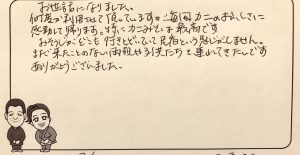 お世話になりました。
何度か利用させて頂いてますが毎回カニのおいしさに
感動して帰ります。特にカニみそは最高です
おそうじがどこも行きとどいていて民宿という感じがしません。
まだ来たことのない両親やら子供たちも連れてきたいです
ありがとうございました。